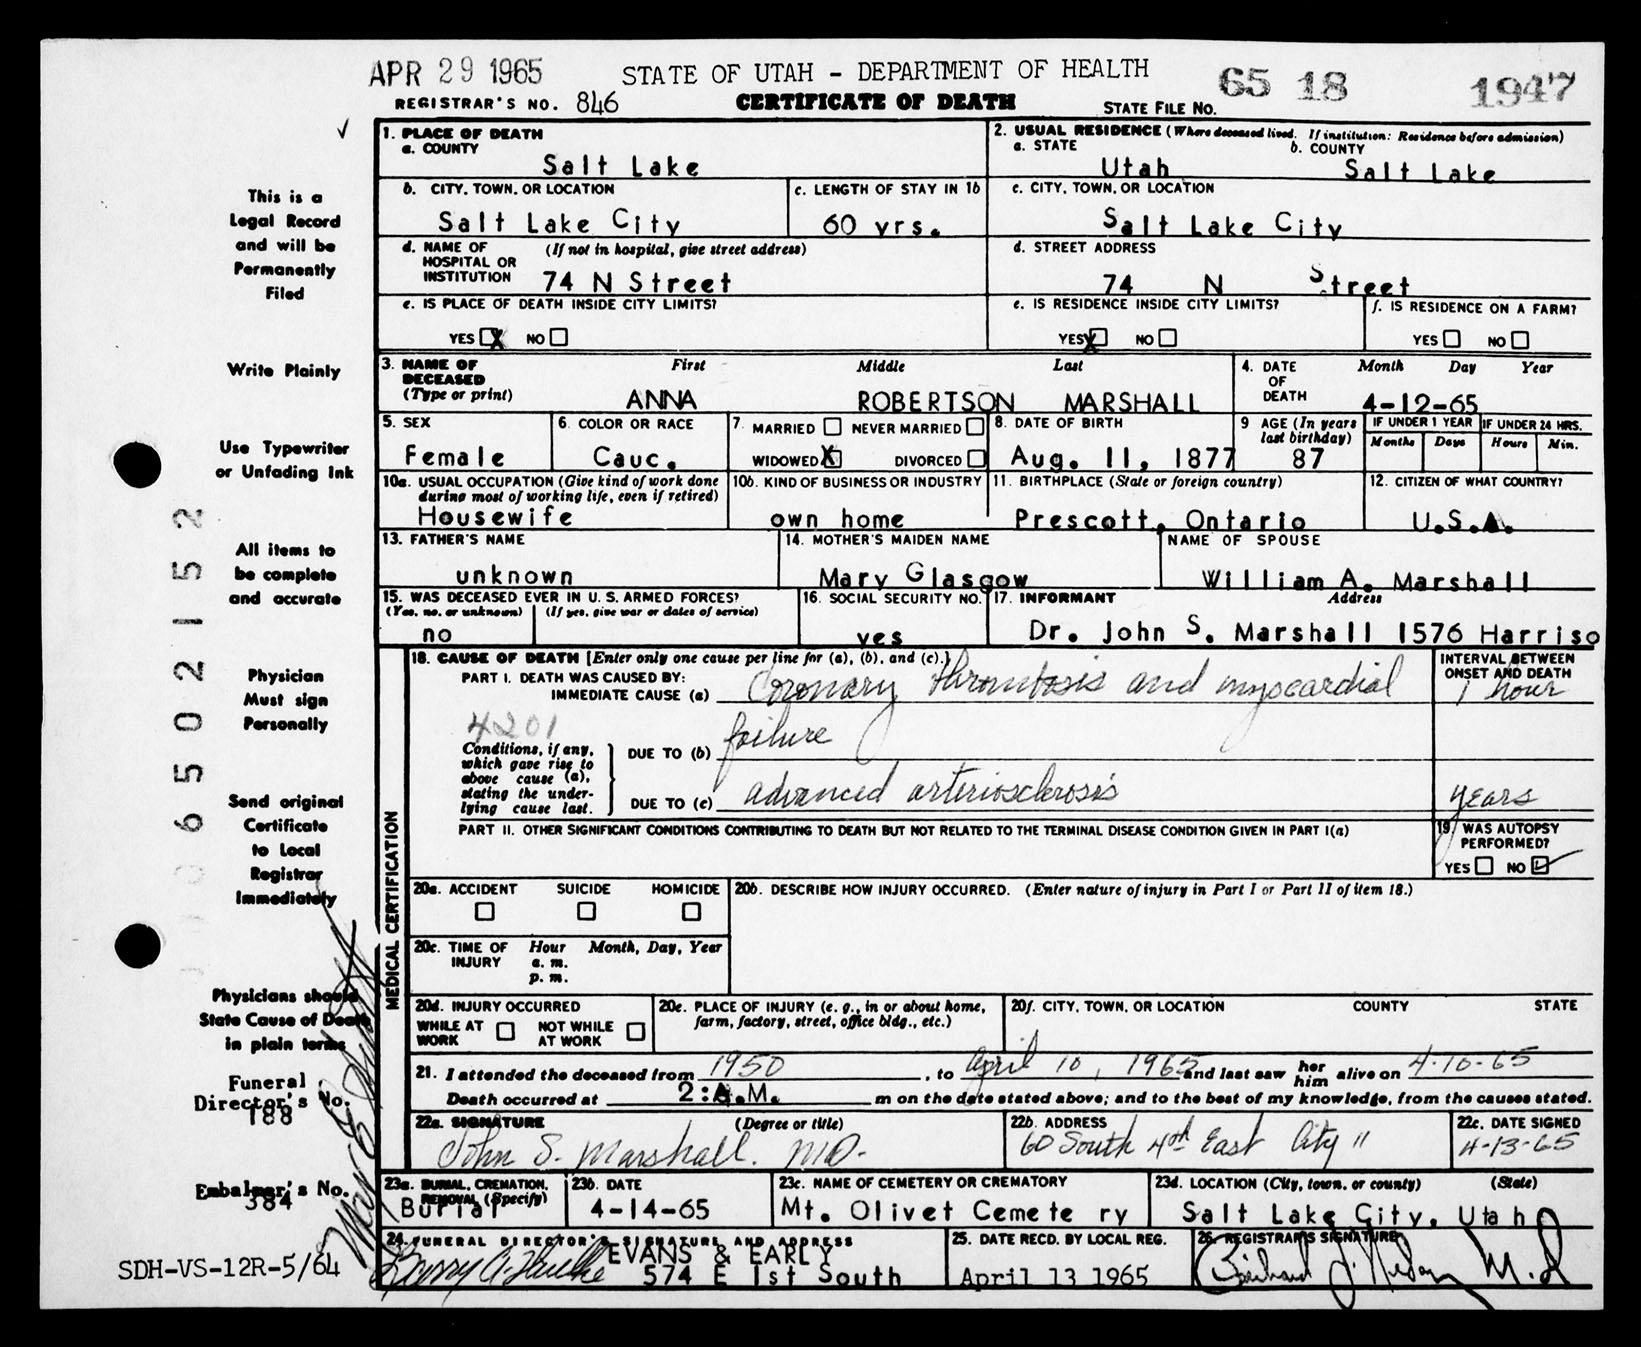 APR 29 1965
STATE OF UTAH - DEPARTMENT OF HEALTH
65 18 1947
REGISTRAR'S NO. 846
CERTIFICATE OF DEATH
STATE FILE NO.
1. PLACE OF DEATH
a. COUNTY
Salt Lake
2. USUAL RESIDENCE (Where deceased lived. If institution: Residence before admission)
a. STATE
Utah
b. COUNTY
Salt Lake
b. CITY, TOWN, OR LOCATION
Salt Lake City
c. LENGTH OF STAY IN 1b
60 yrs.
c. CITY, TOWN, OR LOCATION
Salt Lake City
d. NAME OF HOSPITAL OR INSTITUTION
(If not in hospital, give street address)
74 N Street
d. STREET ADDRESS
74 N Street
e. IS PLACE OF DEATH INSIDE CITY LIMITS?
YES X NO
e. IS RESIDENCE INSIDE CITY LIMITS?
YES X NO
f. IS RESIDENCE ON A FARM?
YES NO
3. NAME OF DECEASED (Type or print)
First Middle Last
ANNA ROBERTSON MARSHALL
4. DATE OF DEATH
Month Day Year
4-12-65
5. SEX
Female
6. COLOR OR RACE
Cauc.
7. MARRIED NEVER MARRIED
WIDOWED X DIVORCED
8. DATE OF BIRTH
Aug. 11, 1877
9 AGE (In years last birthday)
87
IF UNDER 1 YEAR
Months Days
IF UNDER 24 HRS.
Hours Min.
10a. USUAL OCCUPATION (Give kind of work done during most of working life, even if retired)
Housewife
10b. KIND OF BUSINESS OR INDUSTRY
own home
11. BIRTHPLACE (State or foreign country)
Prescott, Ontario
12. CITIZEN OF WHAT COUNTRY?
U.S.A.
13. FATHER'S NAME
unknown
14. MOTHER'S MAIDEN NAME
Mary Glasgow
NAME OF SPOUSE
William A. Marshall
15. WAS DECEASED EVER IN U.S. ARMED FORCES?
(Yes, no, or unknown) (If yes, give war or dates of service)
no
16. SOCIAL SECURITY NO.
yes
17. INFORMANT Address
Dr. John S. Marshall 1576 Harriso
MEDICAL CERTIFICATION
18. CAUSE OF DEATH [Enter only one cause per line for (a), (b), and (c).]
PART I. DEATH WAS CAUSED BY:
IMMEDIATE CAUSE (a) Coronary thrombosis and myocardial
INTERVAL BETWEEN ONSET AND DEATH
1 hour
4201
Conditions, if any, which gave rise to above cause (a), stating the underlying cause last.
DUE TO (b) failure
DUE TO (c) advanced arteriosclerosis
years
PART II. OTHER SIGNIFICANT CONDITIONS CONTRIBUTING TO DEATH BUT NOT RELATED TO THE TERMINAL DISEASE CONDITION GIVEN IN PART I(a)
19. WAS AUTOPSY PERFORMED?
YES NO
20a. ACCIDENT SUICIDE HOMICIDE
20b. DESCRIBE HOW INJURY OCCURRED. (Enter nature of injury in Part I or Part II of item 18.)
20c. TIME OF INJURY
Hour Month, Day, Year
a. m.
p. m.
20d. INJURY OCCURRED
WHILE AT WORK NOT WHILE AT WORK
20e. PLACE OF INJURY (e. g., in or about home, farm, factory, street, office bldg., etc.)
20f. CITY, TOWN, OR LOCATION COUNTY STATE
21. I attended the deceased from 1950, to April 10, 1965 and last saw her him alive on 4-10-65
Death occurred at 2:A.M. m on the date stated above; and to the best of my knowledge, from the causes stated.
22a. SIGNATURE (Degree or title)
John S. Marshall. MD.
22b. ADDRESS
60 South 4th East City 11
22c. DATE SIGNED
4-13-65
23a. BURIAL, CREMATION, REMOVAL (Specify)
Burial
23b. DATE
4-14-65
23c. NAME OF CEMETERY OR CREMATORY
Mt. Olivet Cemete ry
23d. LOCATION (City, town, or county) (State)
Salt Lake City, Utah
24. FUNERAL DIRECTOR'S SIGNATURE AND ADDRESS
EVANS & EARLY
574 E 1st South
25. DATE RECD. BY LOCAL REG.
April 13 1965
26. REGISTRAR'S SIGNATURE
M.D
This is a
Legal Record
and will be
Permanently
Filed
Write Plainly
Use Typewriter
or Unfading Ink
All items to
be complete
and accurate
Physician
Must sign
Personally
Send original
Certificate
to Local
Registrar
Immediately
Physicians should
State Cause of Death
in plain terms
Funeral
Director's No.
188
Embalmer's No.
384
SDH-VS-12R-5/64
6502152